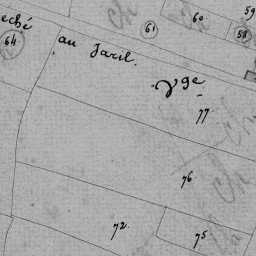 60
59
eché
61
58
64
au Jaril.
Vge
77
76
72
75